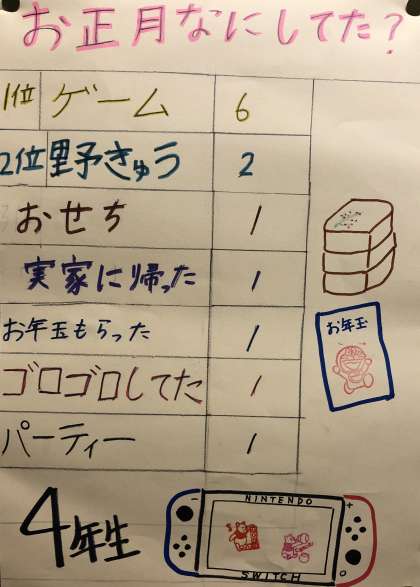 お正月なにしてた?
1位 ゲーム 6
2位 里予きゅう 2
おせち 1
実家に帰った 1
お年玉もらった 1
ゴロゴロしてた 1
パーティー 1
お年玉
4年生
NINTENDO
SWITCH